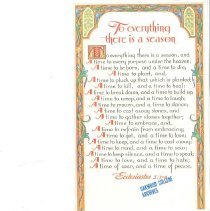 To everything
there is a season
To everything there is a season, and
A time to every purpose under the heaven:
A time to be born, and a time to die,
A time to plant, and,
A time to pluck up that which is planted;
A time to kill, and a time to heal;
A time to break down, and a time to build up,
A time to weep, and a time to laugh;
A time to mourn, and a time to dance;
A time to cast away stones, and
A time to gather stones together;
A time to embrace, and,
A time to refrain from embracing;
A time to get, and a time to lose,
A time to keep, and a time to cast away;
A time to rend, and a time to sew;
A time to keep silence, and a time to speak;
A time to love, and a time to hate;
A time of war, and a time of peace.
Ecclesiastes
COLLEGE
ARCHIVES